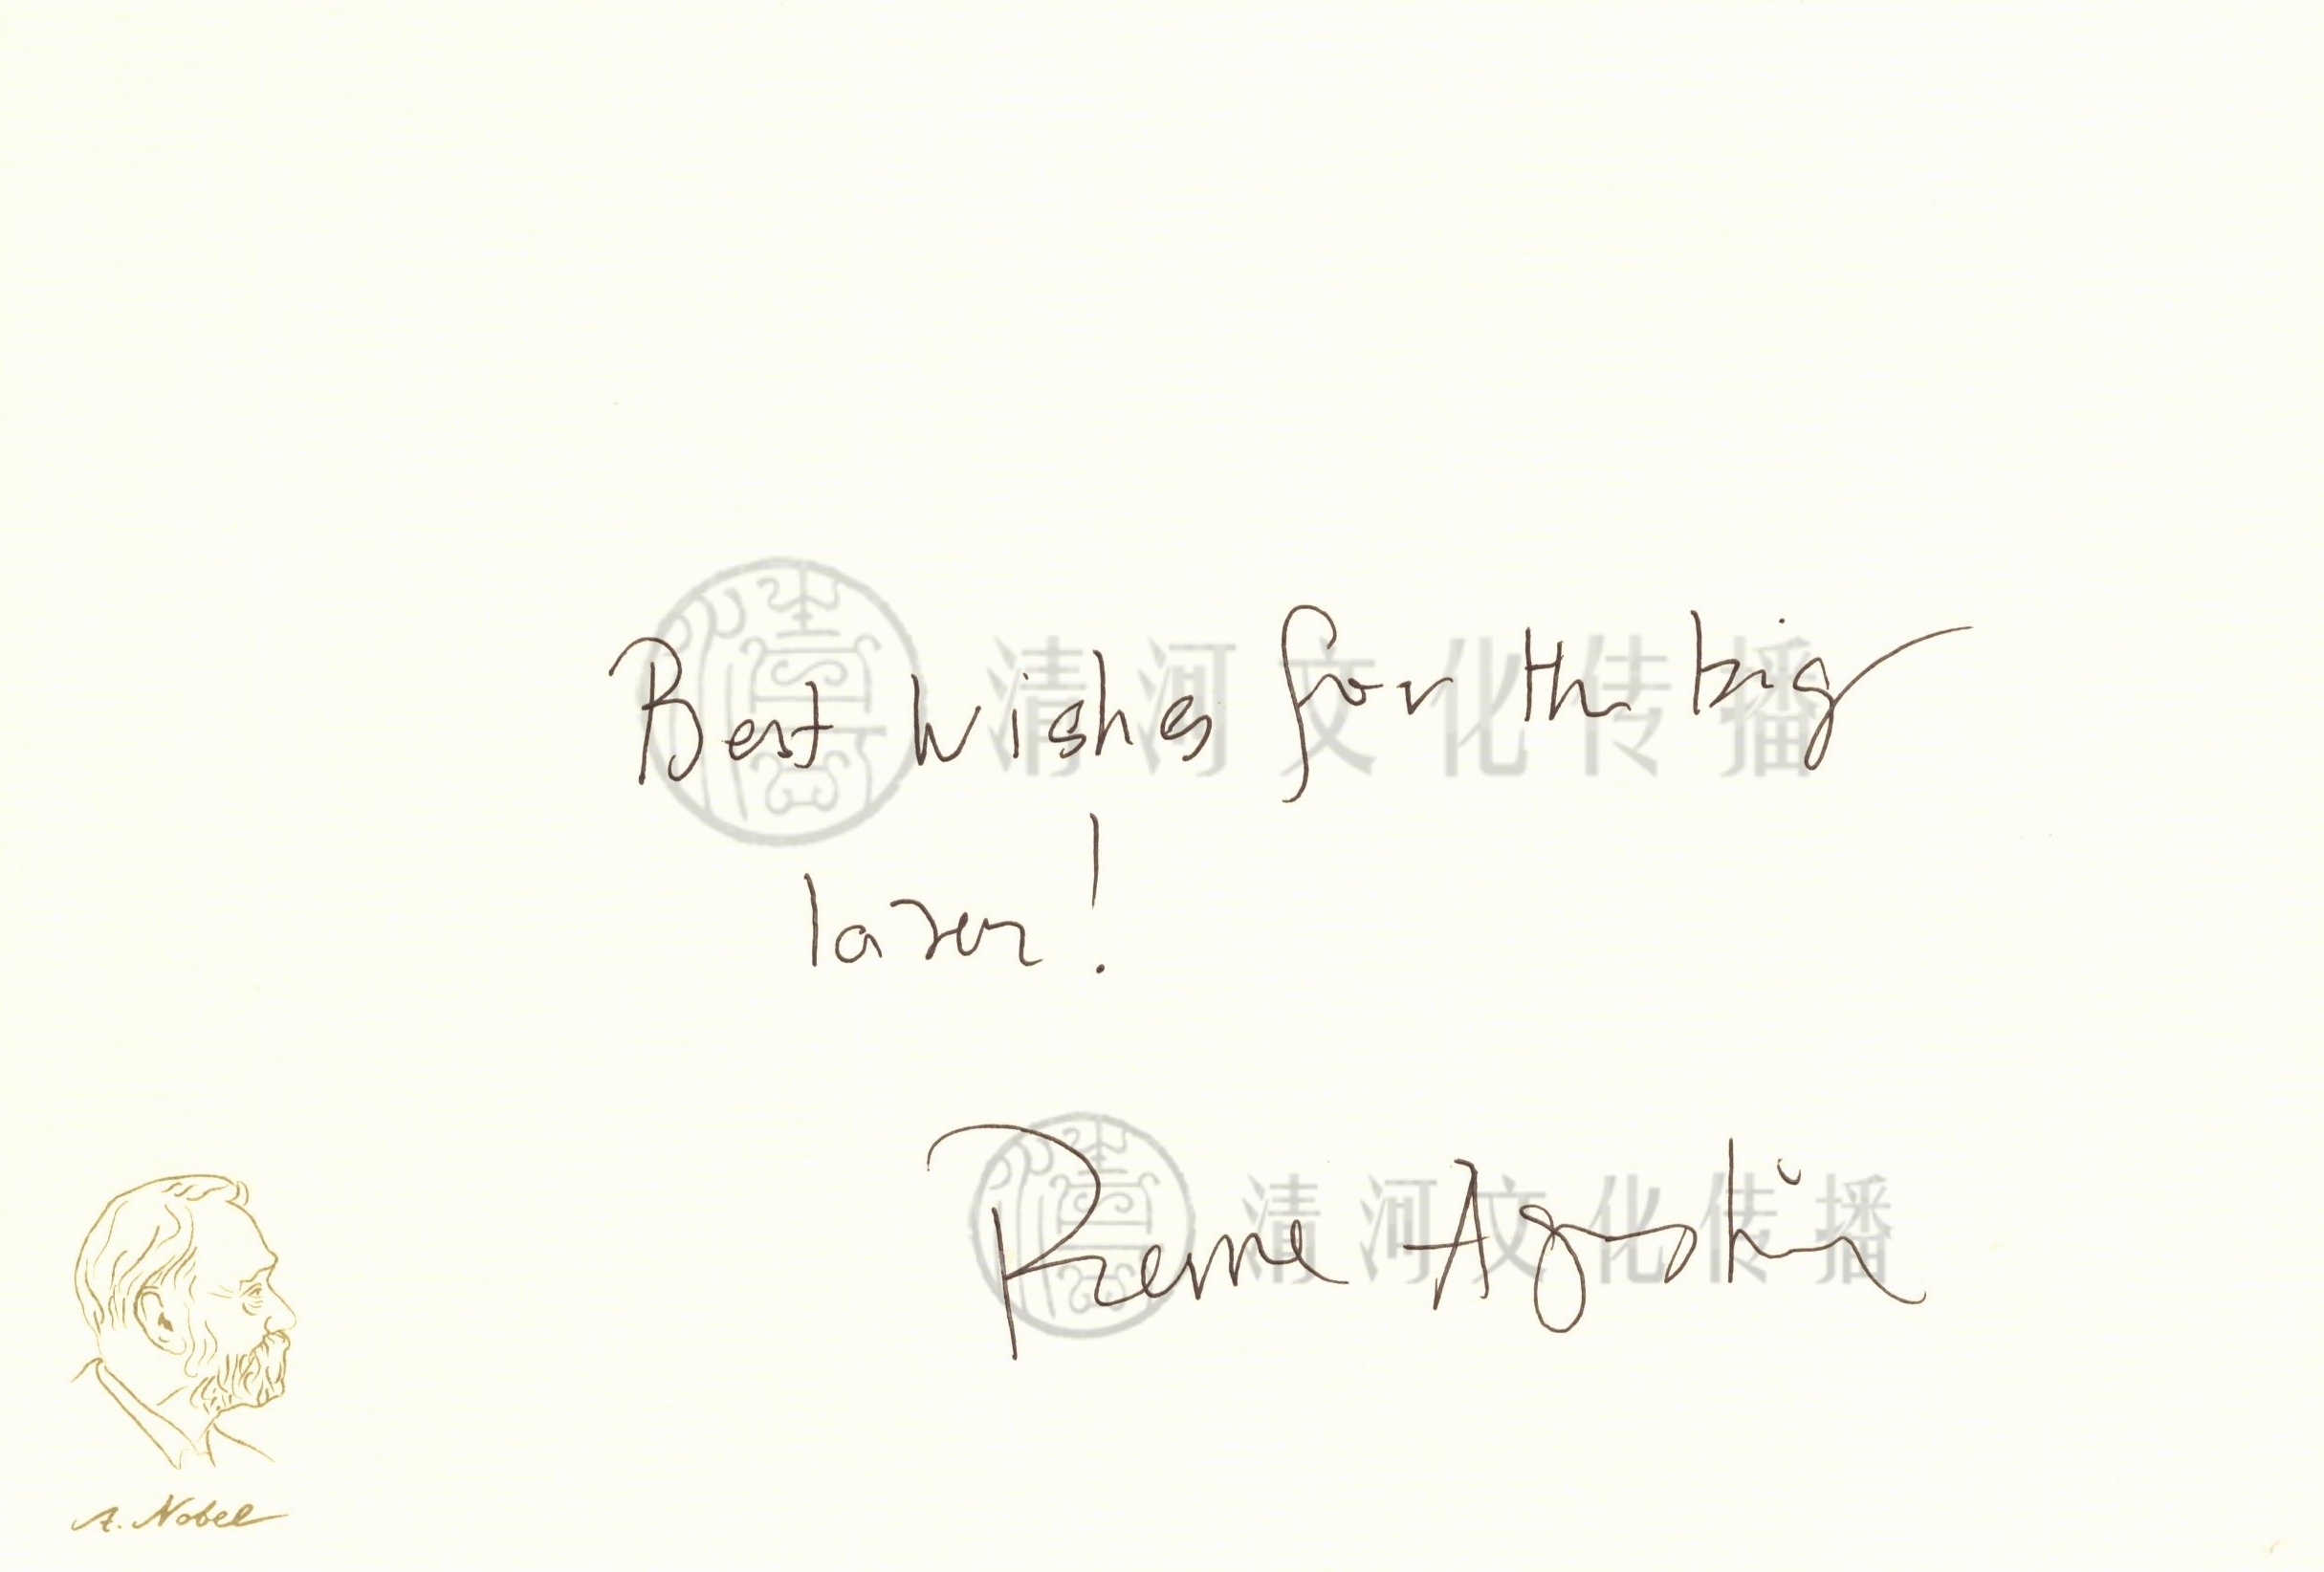 Best wishes for the big
laser!
清河文化传播
Pierre Agostini
清河文化传播
A. Nobel